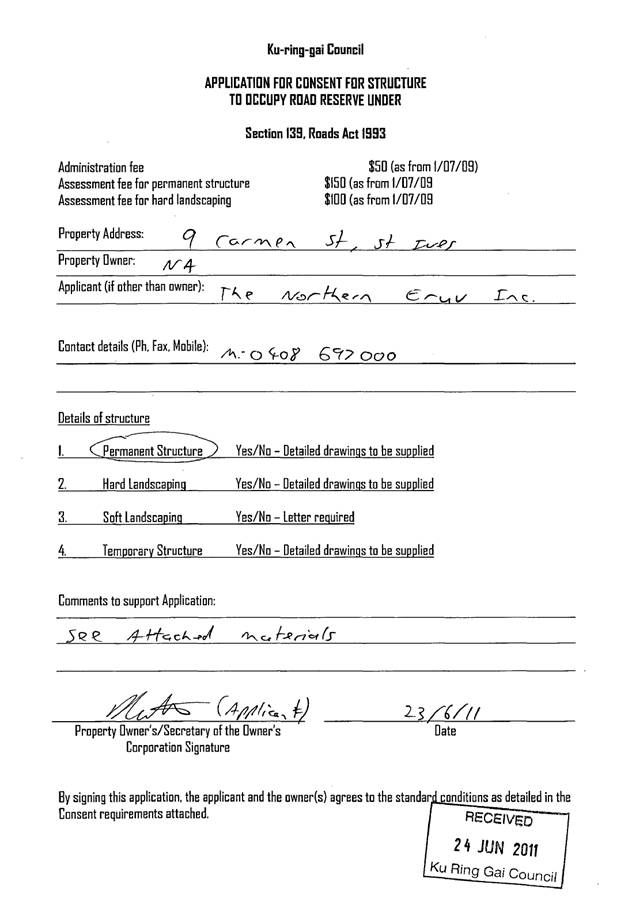 Ku-ring-gai Council
APPLICATION FOR CONSENT FOR STRUCTURE
TO OCCUPY ROAD RESERVE UNDER
Section 139, Roads Act 1993
Administration fee $50 (as from 1/07/09)
Assessment fee for permanent structure $150 (as from 1/07/09
Assessment fee for hard landscaping $100 (as from 1/07/09
Property Address: 9 Carmen St, St Ives
Property Owner: NA
Applicant (if other than owner): The Northern Eruv Inc.
Contact details (Ph, Fax, Mobile): M:- 0408 697000
Details of structure
1. Permanent Structure Yes/No – Detailed drawings to be supplied
2. Hard Landscaping Yes/No – Detailed drawings to be supplied
3. Soft Landscaping Yes/No – Letter required
4. Temporary Structure Yes/No – Detailed drawings to be supplied
Comments to support Application:
See Attached materials
(Applicant) 23/6/11
Property Owner's/Secretary of the Owner's Date
Corporation Signature
By signing this application, the applicant and the owner(s) agrees to the standard conditions as detailed in the
Consent requirements attached.
RECEIVED
24 JUN 2011
Ku Ring Gai Council